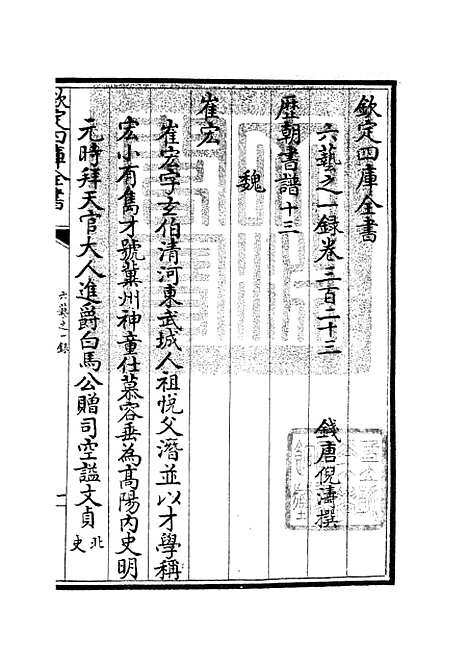 欽定四庫全書
六藝之一録卷三百二十三
錢唐倪濤撰
歴朝書譜十三
魏
崔宏
崔宏字玄伯清河東武城人祖悅父潛並以才學稱
宏小有雋才號冀州神童仕慕容垂為高陽内史明
元時拜天官大人進爵白馬公贈司空諡文貞北史
欽定四庫全書
六藝之一録